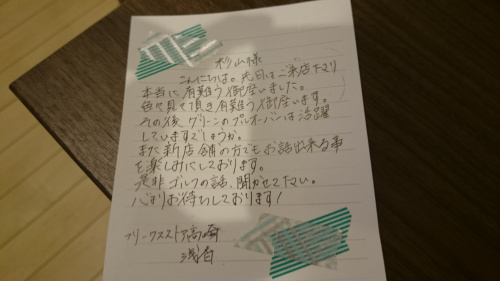 杉山様
こんにちは。先日はご来店下さり
本当に有難う御座いました。
見せて頂き有難う御座います。
その後、グリーンのプルオーバーは活躍
していますでしょうか。
また新店舗の方でもお話出来る事
を楽しみにしております。
是非ゴルフの話、聞かせて下さい。
お待ちしております!
フリークスストア高崎